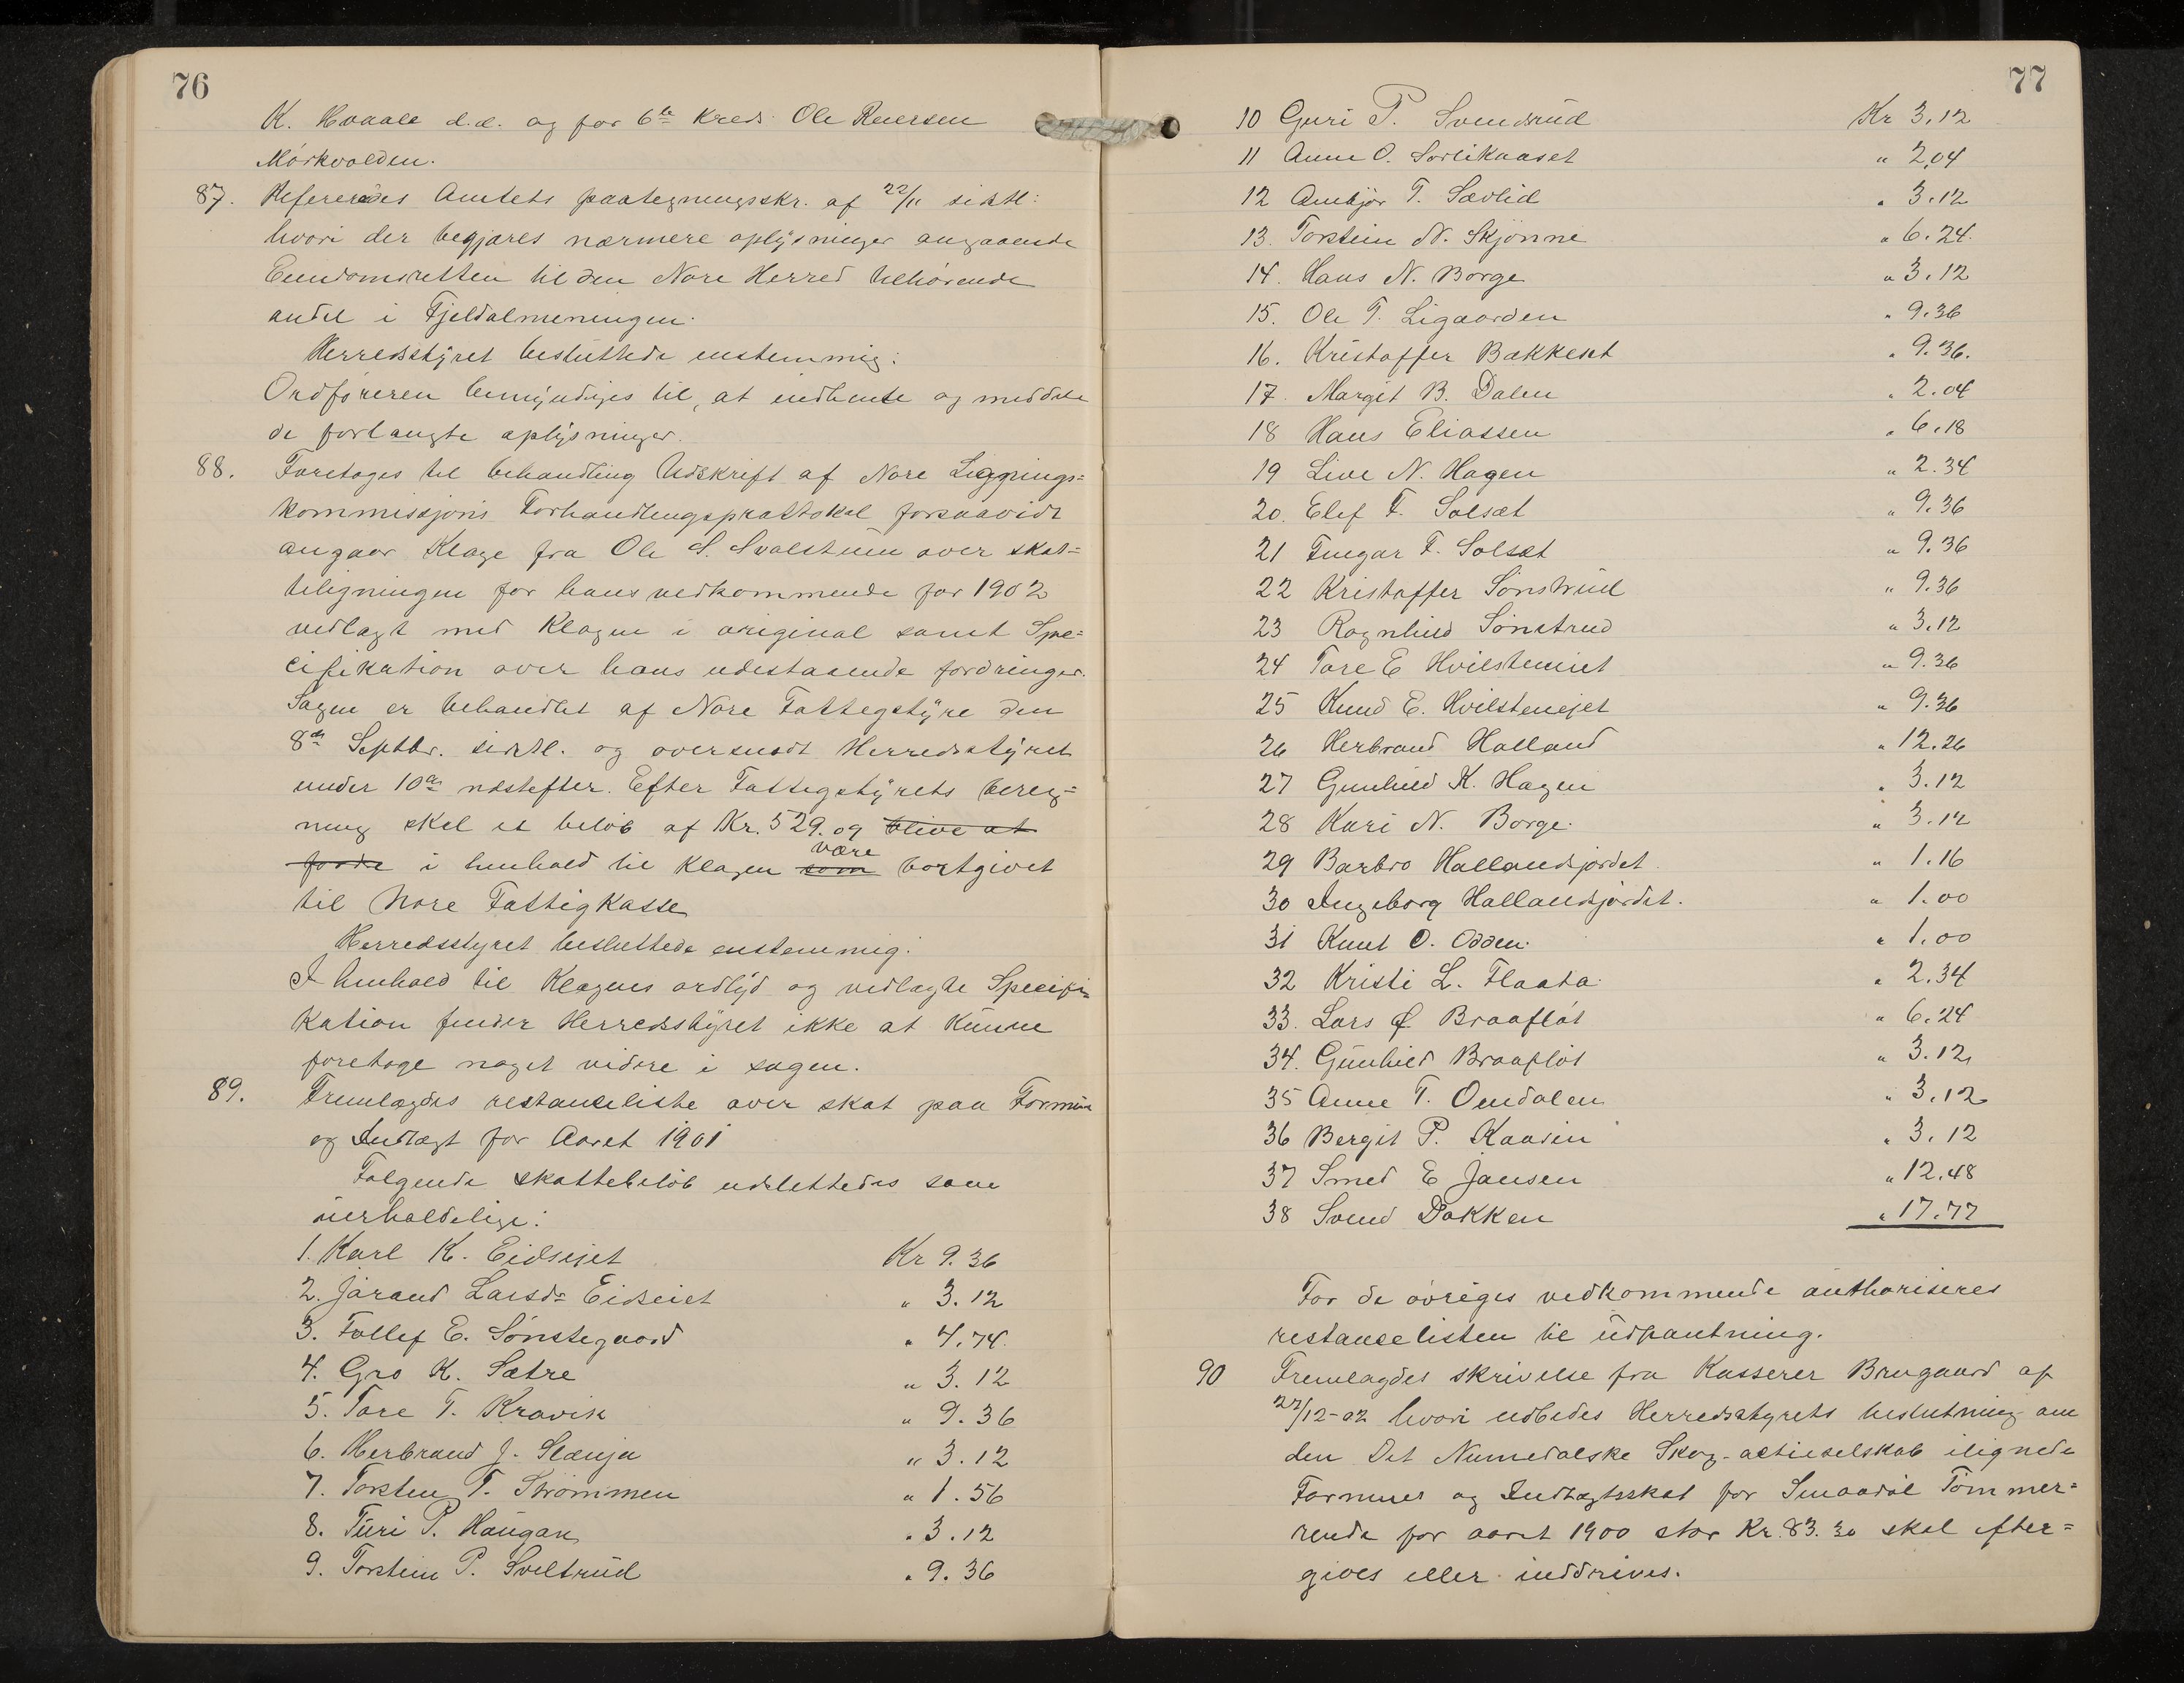 76
K. Hvaale d.e. og for 6te Kreds: Ole Reiersen
Mørkvolden.
87. Refereredes Amtets paategningsskr. af 22/11 sidstl:
hvori der begjæres nærmere oplysninger angaaende
Eiendomsretten til den Nore Herred tilhørende
andel i Fjeldalmeningen.
Herredsstyret besluttede enstemmig:
Ordføreren bemyndiges til, at indhente og meddele
de forlangte oplysninger.
88. Foretoges til behandling Udskrift af Nore Liggnings=
kommissjons Forhandlingsprottokol forsaavidt
angaar Klage fra Ole S. Svalstuen over skat=
teligningen for hans vedkommende for 1902
vedlagt med Klagen i original samt Spe=
cifikation over hans udestaaende fordringer.
Sagen er behandlet af Nore Fattigstyre den
8de Septbr. sidstl. og oversendt Herredsstyret
under 10de næstefter. Efter Fattigstyrets bereg=
ning skal et beløb af Kr. 529.09 blive at
forde i henhold til Klagen som være bortgivet
til Nore Fattigkasse
Herredsstyret besluttede enstemmig:
I henhold til Klagens ordlyd og vedlagte Specifi=
kation finder Herredsstyret ikke at kunne
foretage noget videre i sagen.
89. Fremlagdes restanceliste over skat paa Formue
og Indtægt for Aaret 1901
Følgende skattebeløb udslettedes som
uerholdelige:
1. Karl K. Eidsejet Kr 9.36
2. Jørand Larsdr Eidseiet " 3.12
3. Tollef E. Sønstegaard " 4.74.
4. Gro K. Sætre " 3.12
5. Tore T. Kravik " 9.36
6. Herbrand J. Slænja " 3.12
7. Torsten T. Strømmen " 1.56
8. Turi P. Haugan " 3.12
9. Torstein P. Sveltrud " 9.36
77
10 Guri P. Svendsrud Kr 3.12
11 Anne O. Sørlikaaset " 2,04
12 Ambjør T. Sævlid " 3.12
13. Torstein N. Skjønne " 6.24.
14. Hans N. Borge " 3.12
15. Ole T. Ligaarden " 9.36
16. Kristoffer Bakkeset " 9.36.
17. Margit B. Dalen " 2.04
18 Hans Eliassen " 6.18
19 Live N. Hagen " 2.34
20. Elef T. Solsæt " 9.36
21 Tingar T. Solsæt " 9.36
22 Kristoffer Sønstrud " 9.36
23 Ragnhild Sønstrud " 3.12
24 Tore E Hvilsteniet " 9.36
25 Knud E. Hvilstenejet " 9.36
26 Herbrand Halland " 12.26
27 Gunhild K. Hagen " 3.12
28 Kari N. Borge. " 3.12
29 Barbro Hallandsjordet. " 1.16
30 Ingeborg Hallandsjordet. " 1.00
31 Knut O. Odden. " 1.00
32 Kristi L. Flaata. " 2.34
33. Lars Ø. Braafløt " 6.24
34. Gunhild Braafløt " 3.12
35 Anne T. Omdalen " 3.12
36 Bergit P. Kaasin " 3.12
37 Smed E Jansen " 12.48
38 Svend Dokken " 17.77
For de øvriges vedkommende authoriseres
restancelisten til udpantning.
90 Fremlagdes skrivelse fra Kasserer Brugaard af
22/12-02 hvori udbedes Herredsstyrets beslutning om
den Det Numedalske Skog-actieselskab ilignede
Formues og Indtægtsskat for Smaadøl Tømmer=
rende for aaret 1900 stor Kr. 83.30 skal efter=
gives eller inddrives.